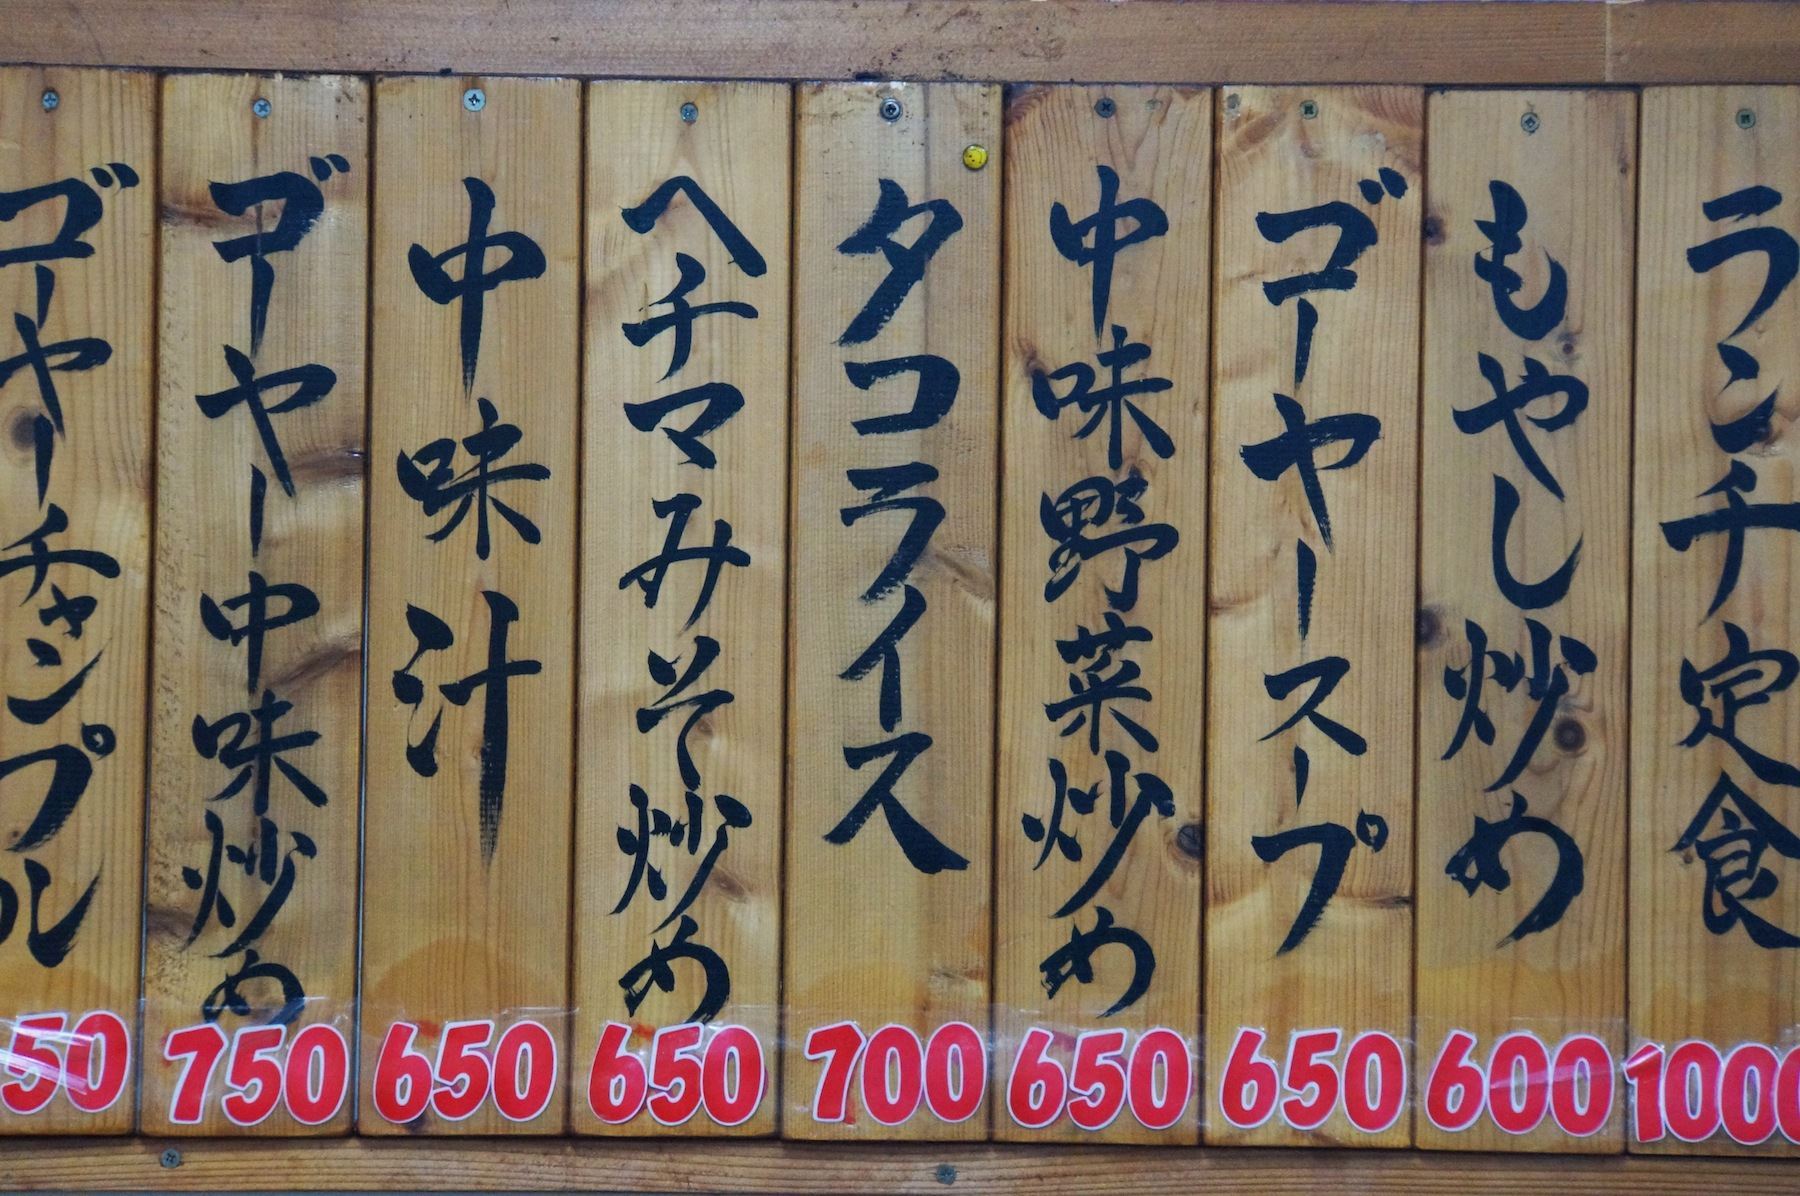 ランチ定食
1000
もやし炒め
600
ゴーヤースープ
650
中味野菜炒め
650
タコライス
700
ヘチマみそ炒め
650
中味汁
650
ゴーヤー中味炒め
750
ゴーヤーチャンプル
50